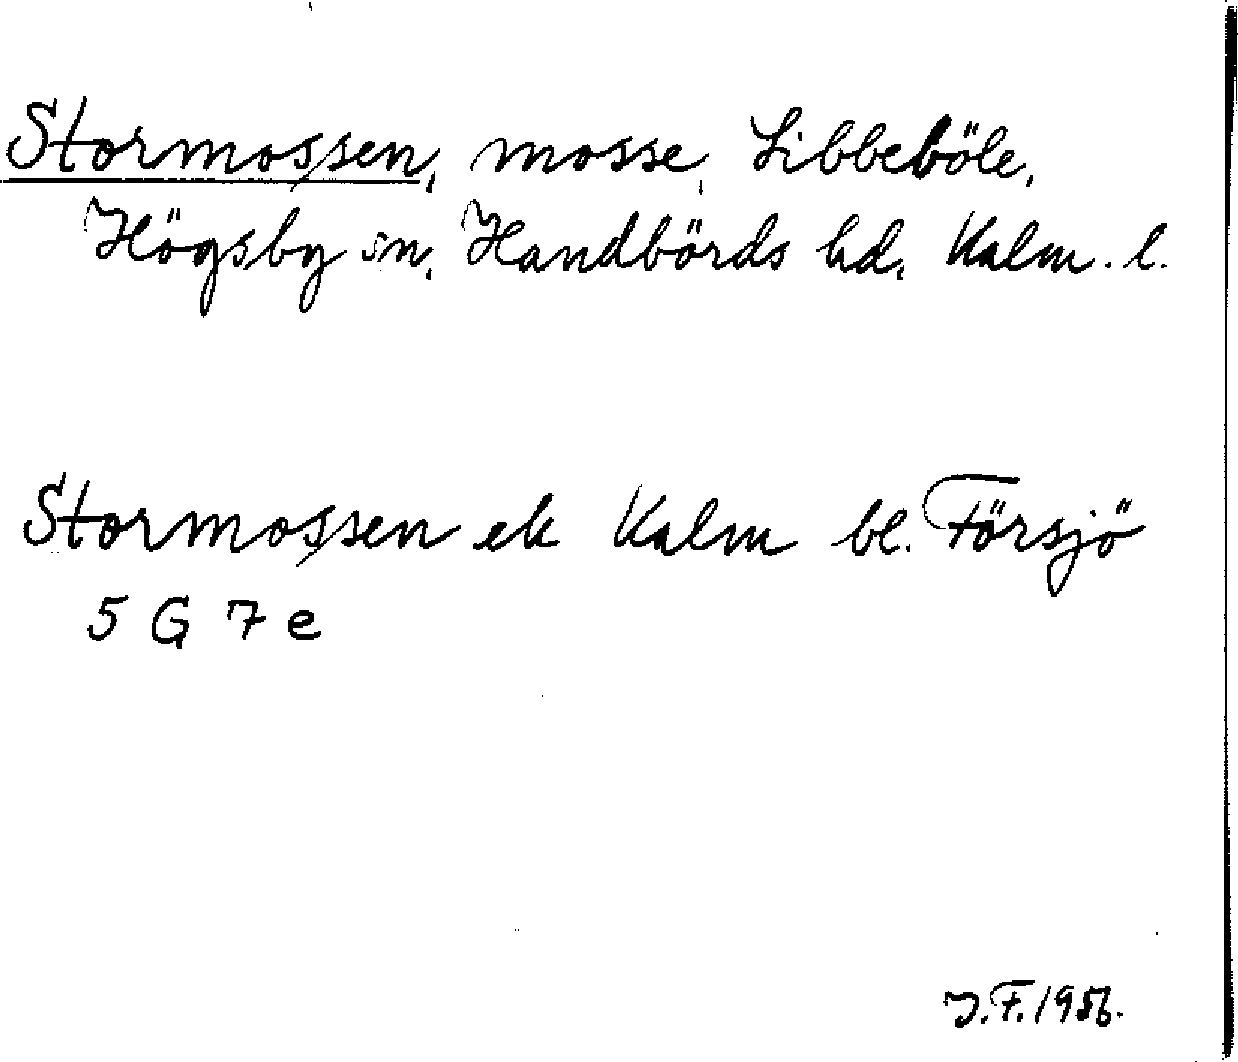 Stormossen, mosse, Libbeböle,
Högsby sn, Handbörds hd, Kalm. l.
Stormossen ek Kalm bl. Försjö
5 G 7 e
J.F. 1956.